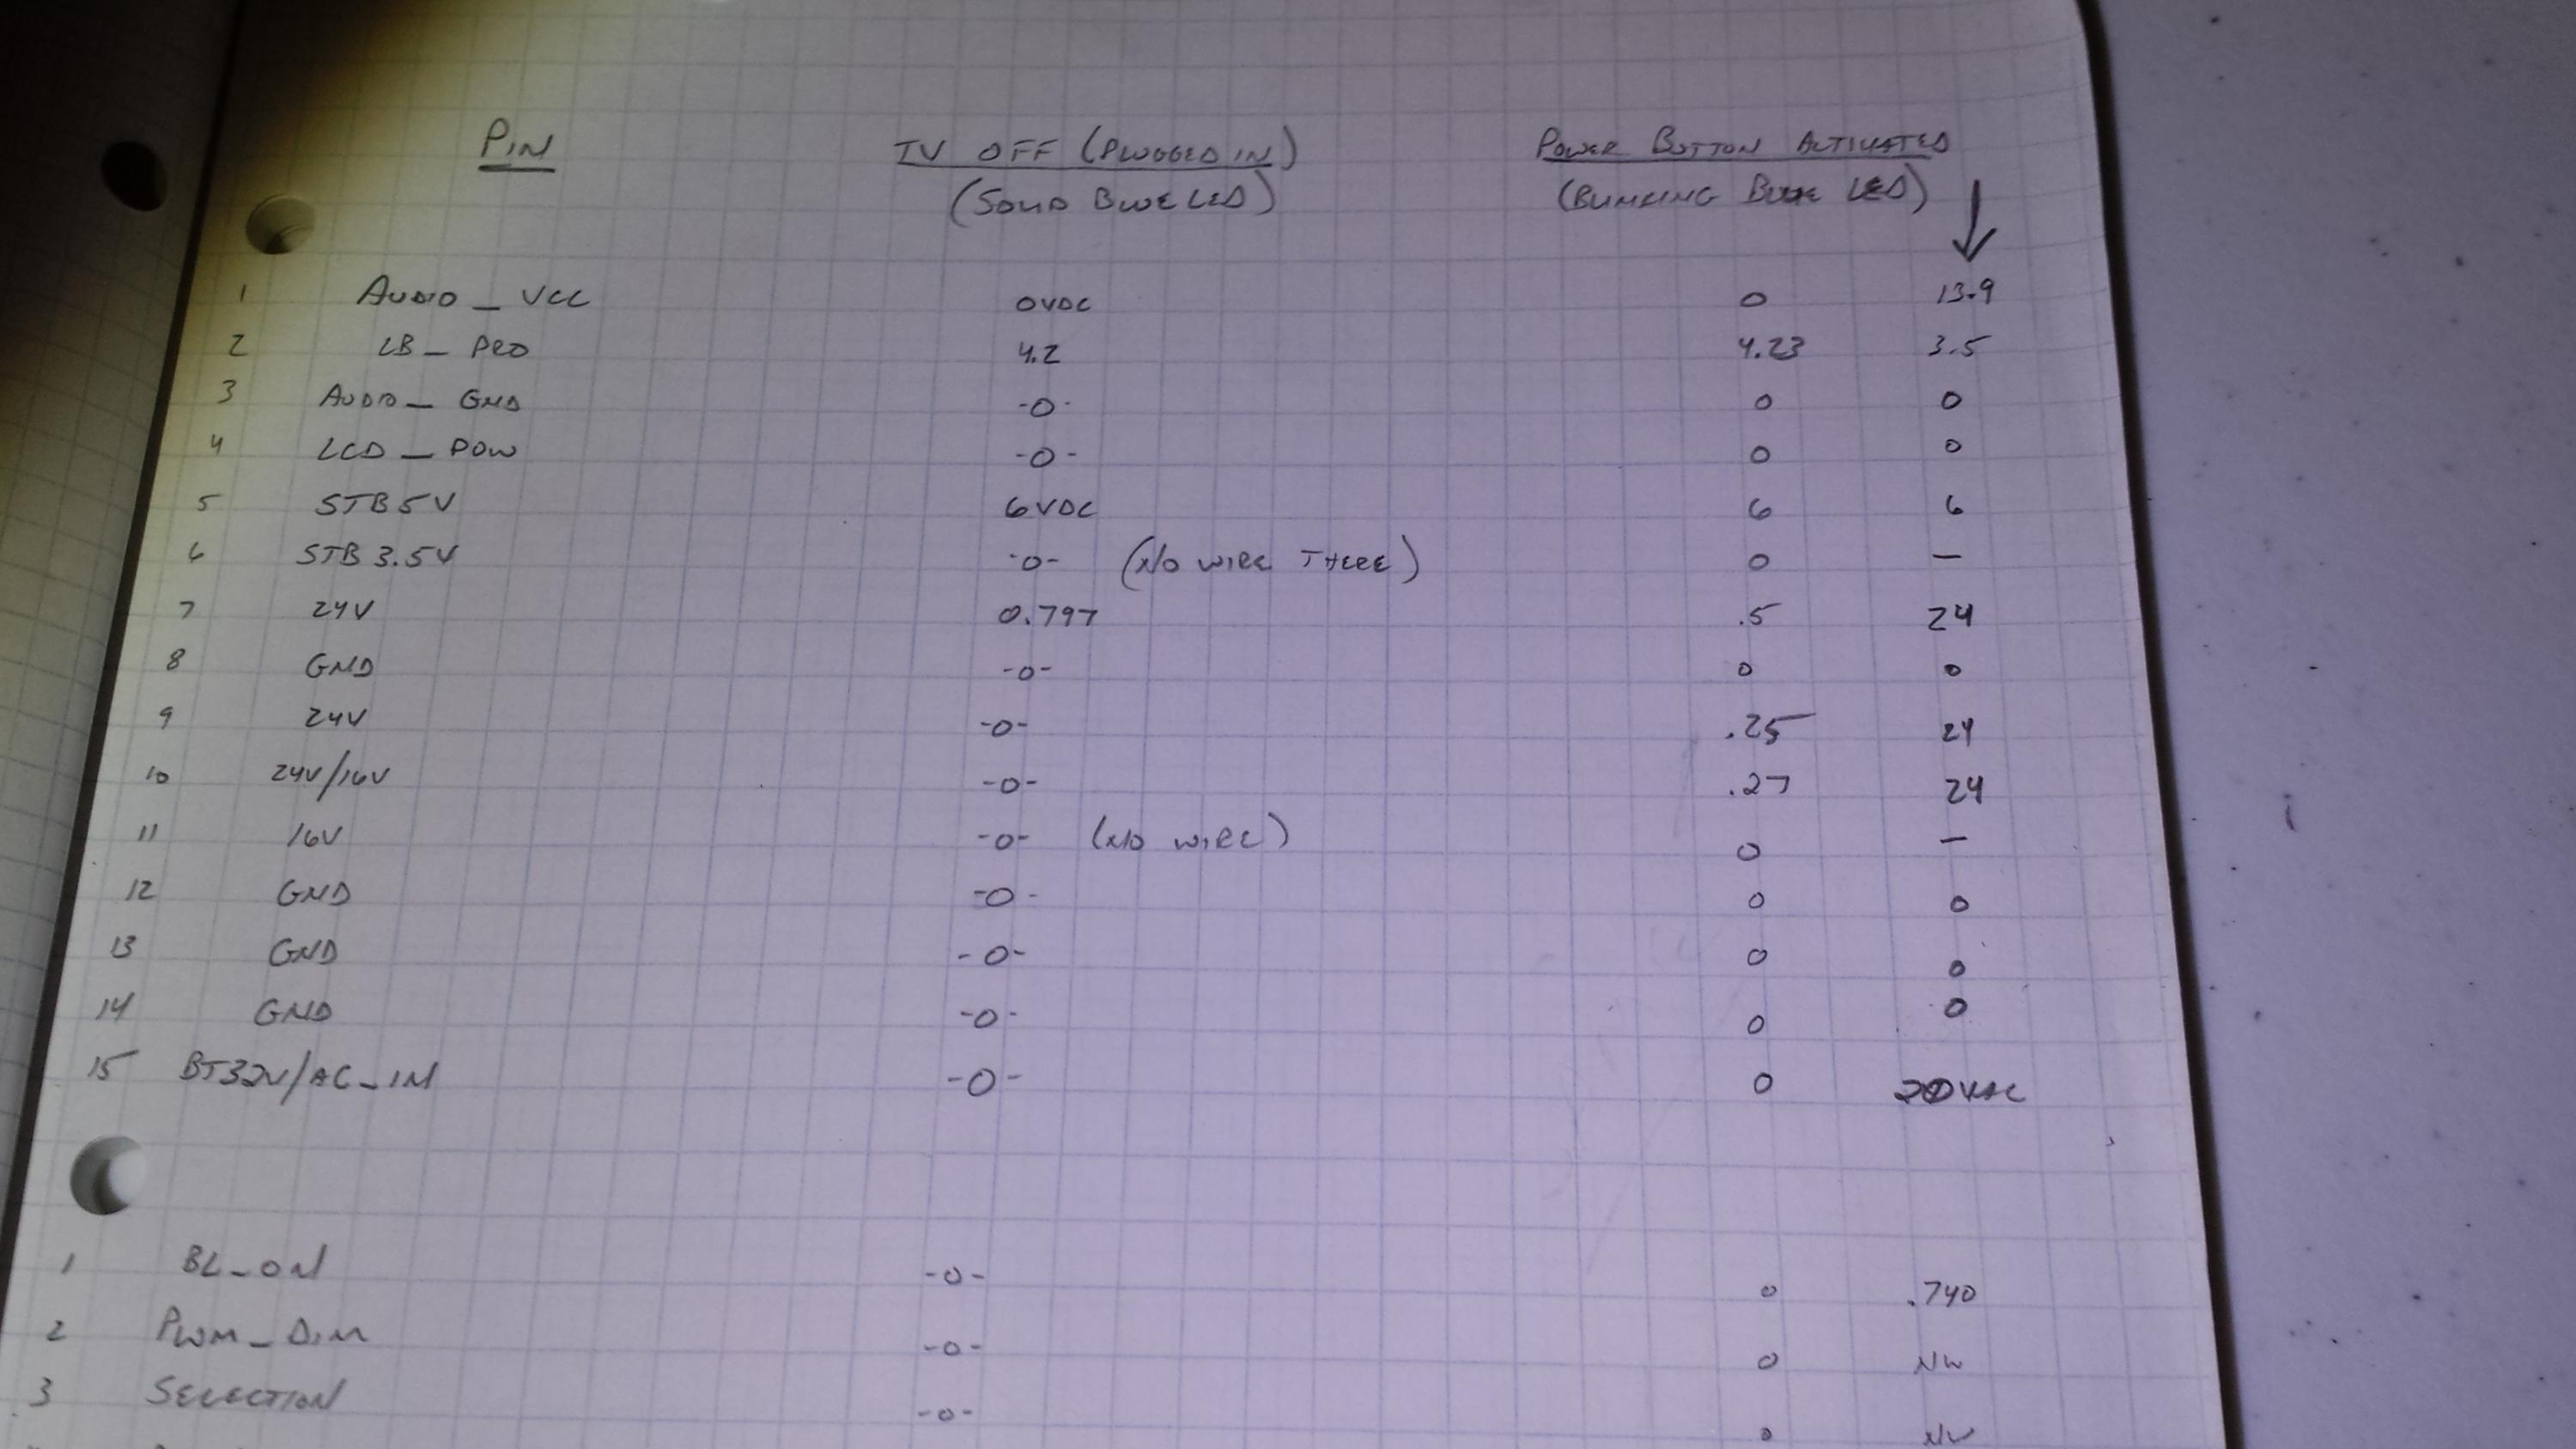 PIN TV OFF (PLUGGED IN) POWER BUTTON ACTIVATED
(SOLID BLUE LED) (BLINKING BLUE LED)
1 AUDIO_VCC 0VDC 0 13.9
2 LB_PRO 4.2 4.23 3.5
3 AUDIO_GND -0- 0 0
4 LCD_POW -0- 0 0
5 STB5V 6VDC 6 6
6 STB3.5V -0- (NO WIRE THERE) 0 —
7 24V 0.797 .5 24
8 GND -0- 0 0
9 24V -0- .25 24
10 24V/16V -0- .27 24
11 16V -0- (NO WIRE) 0 —
12 GND -0- 0 0
13 GND -0- 0 0
14 GND -0- 0 0
15 BT32V/AC_IN -0- 0 20VAC
1 BL_ON -0- 0 .740
2 PWM_DIM -0- 0 NW
3 SELECTION -0- 0 NW